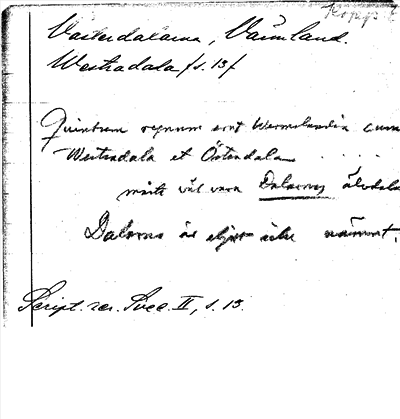 Kopps
Västerdalarna, Värmland.
Westradala (s. 13)
Quintum regnum erat Wermelandia cum
Westradala et Östradala . . . .
måste väl vara Dalarnas älvdala
Dalarna är eljest icke nämnt.
Script. rer. Svec. II, s. 13.